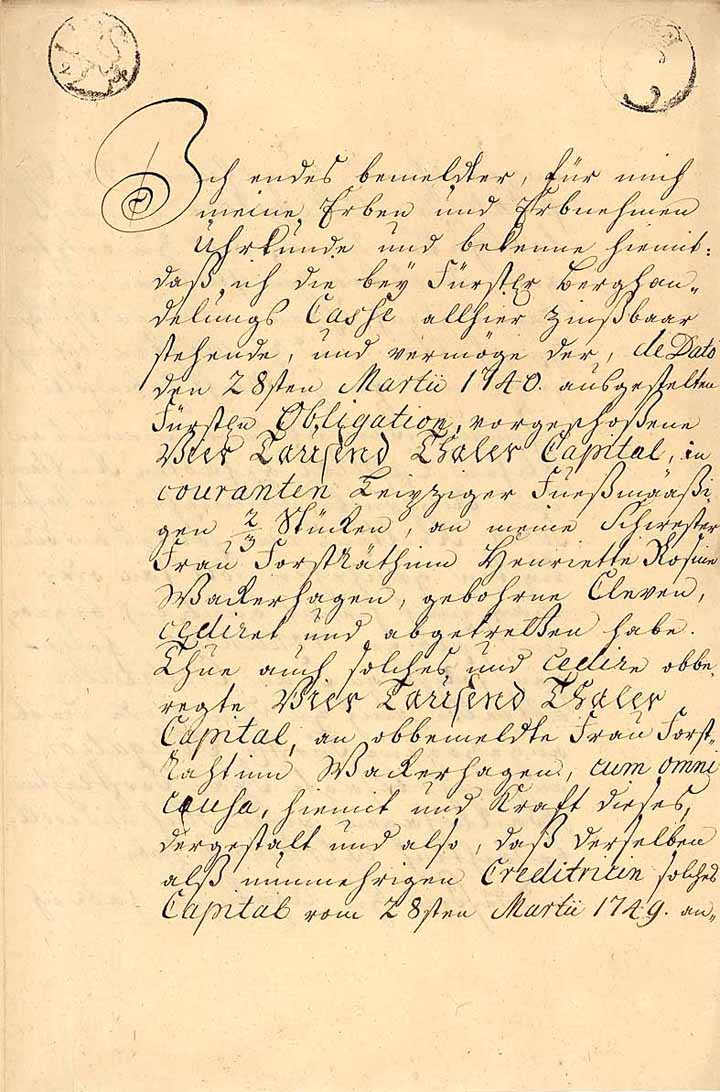 Ich endes bemeldter, für mich
meine Erben und Erbnehmen
Uhrkunde und bekenne hiemit:
daß ich die bey Fürstlr Berghan-
delungs Casse allhier zinßbaar
stehende, und vermöge der, de Dato
den 28sten Martii 1740. ausgestelten
Fürstln Obligation, vorgeschoßene
Vier Tausend Thaler Capital, in
couranten Leipziger Fueßmääßi-
gen 2/3 Stücken, an meine Schwester
Frau ForstRäthinn Henriette Rosine
Wackerhagen, gebohrne Cleven,
cediret und abgetretten habe.
Thue auch solches und cedire obbe-
regte Vier Tausend Thaler
Capital, an obbemeldte Frau Forst-
Rähtinn Wackerhagen, cum omni
causa, hiemit und Kraft dieses,
dergestalt und also, daß derselben
alß nunmehrigen Creditricin solches
Capital vom 28sten Martii 1749. an-